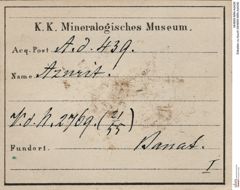 K. K. Mineralogisches Museum.
Acq.-Post. A. d. 439.
Name Azurit.
V. d. N. 2769. (21/55)
Fundort. Banat.
I